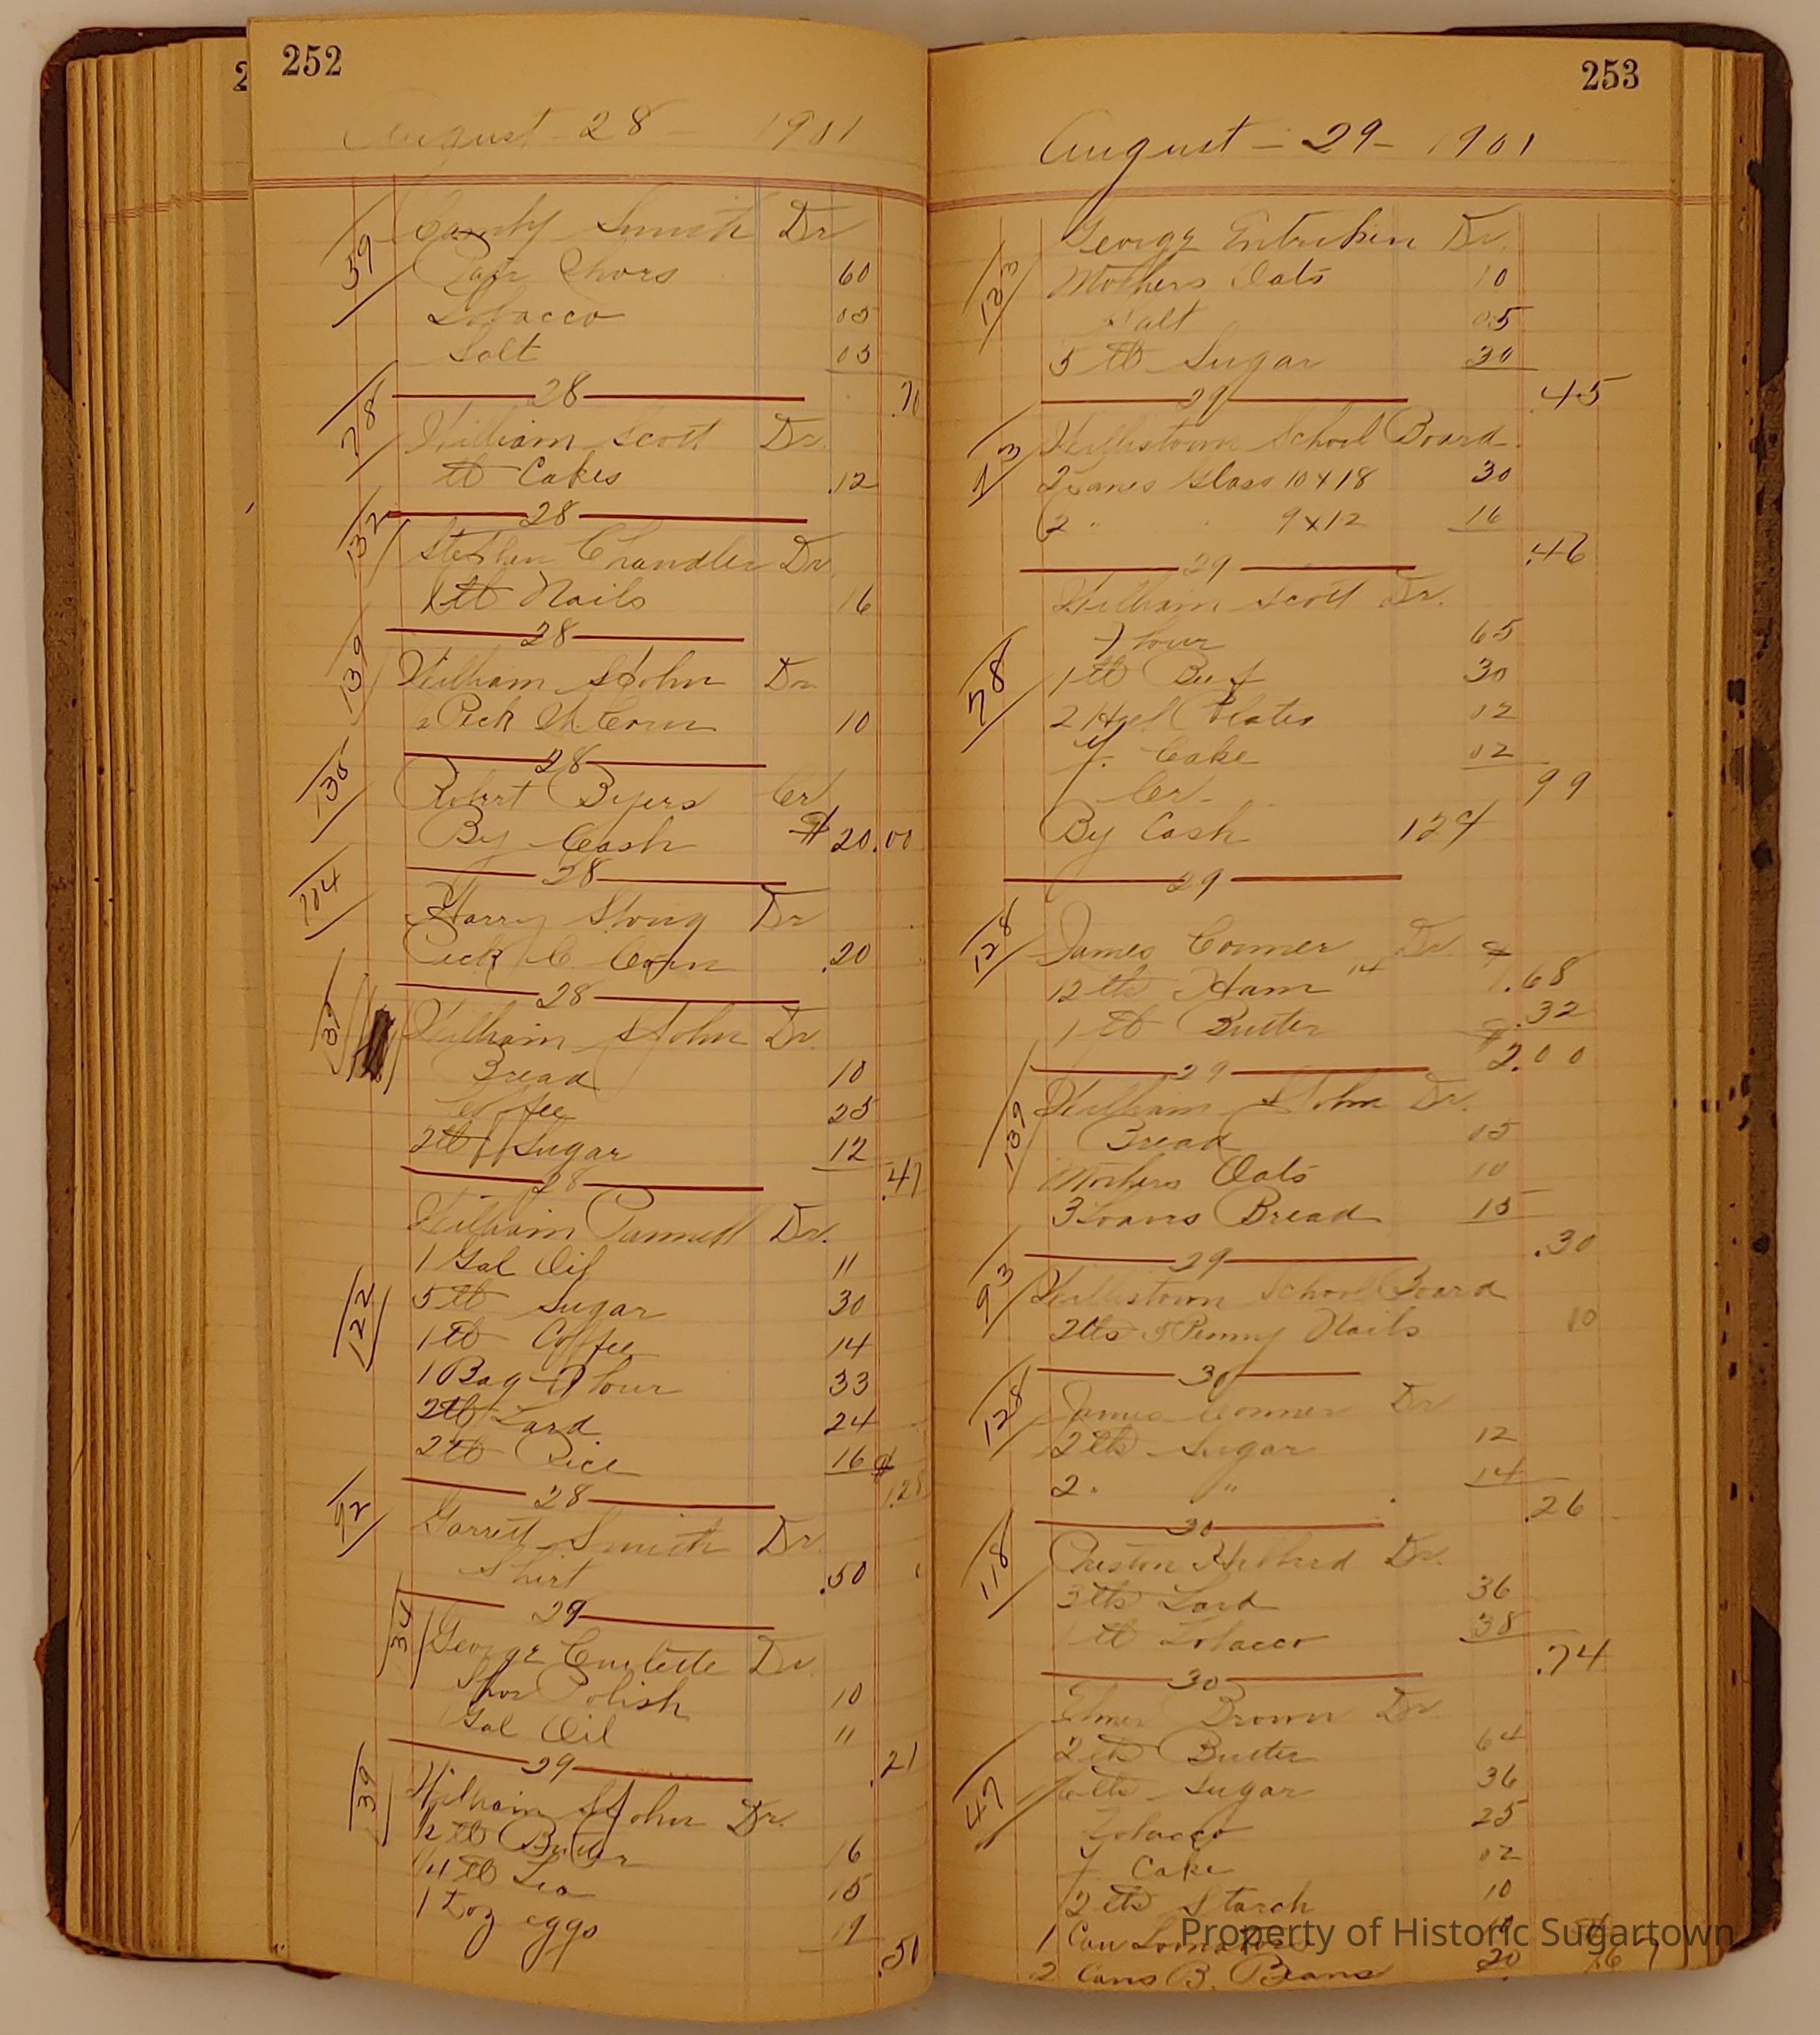 252
August - 28 - 1901
59 Smith Dr
Pair Shoes 60
Tobacco 05
Salt 05
.70
28
78 William Scott Dr.
lb Cakes .12
28
132 Stephen Chandler Dr.
1 lb Nails 16
28
139 William StJohn Dr.
Peck Corn 10
28
Robert Byers Cr
By Cash $20.00
28
104 Harry Dr
Peck C. Corn .20
28
William StJohn Dr.
Bread 10
Coffee 25
2 lb Sugar 12
.47
28
William Dr.
1 Gal Oil 11
5 lb Sugar 30
1 lb Coffee 14
1 Bag Flour 33
2 lb Lard 24
2 lb Rice 16
1.28
28
92 Garrett Smith Dr.
Shirt .50
29
34 George Dr.
Shoe Polish 10
Gal Oil 11
.21
29
39 William StJohn Dr.
1/2 lb Butter 16
1/4 lb Tea 15
1 Doz eggs 19
.50
253
August - 29 - 1901
123 George Entriken Dr.
Mothers Oats 10
Salt 05
5 lb Sugar 30
.45
29
93 Willistown School Board.
2 Panes Glass 10x18 30
2 " " 9x12 16
.46
29
William Scott Dr.
Flour 65
78
1 lb Beef 30
2 Plates 02
Y. Cake 02
99
Cr.
By Cash 124
29
128 James Conner Dr.
12 lbs Ham 14 1.68
1 lb Butter .32
$2.00
29
139 William StJohn Dr.
Bread 05
Mothers Oats 10
3 Loaves Bread 15
.30
29
93 Willistown School Board
2 lbs 8 Penny Nails 10
30
128 James Conner Dr
2 lbs Sugar 12
2 " " 14
.26
30
118 Preston Hibberd Dr.
3 lbs Lard 36
1 lb Tobacco 38
.74
30
Elmer Brown Dr
2 lbs Butter 64
47 6 lbs Sugar 36
Tobacco 25
Y Cake 02
2 lbs Starch 10
1 Can Tomatoes 10
2 Cans B. Beans 20
Property of Historic Sugartown